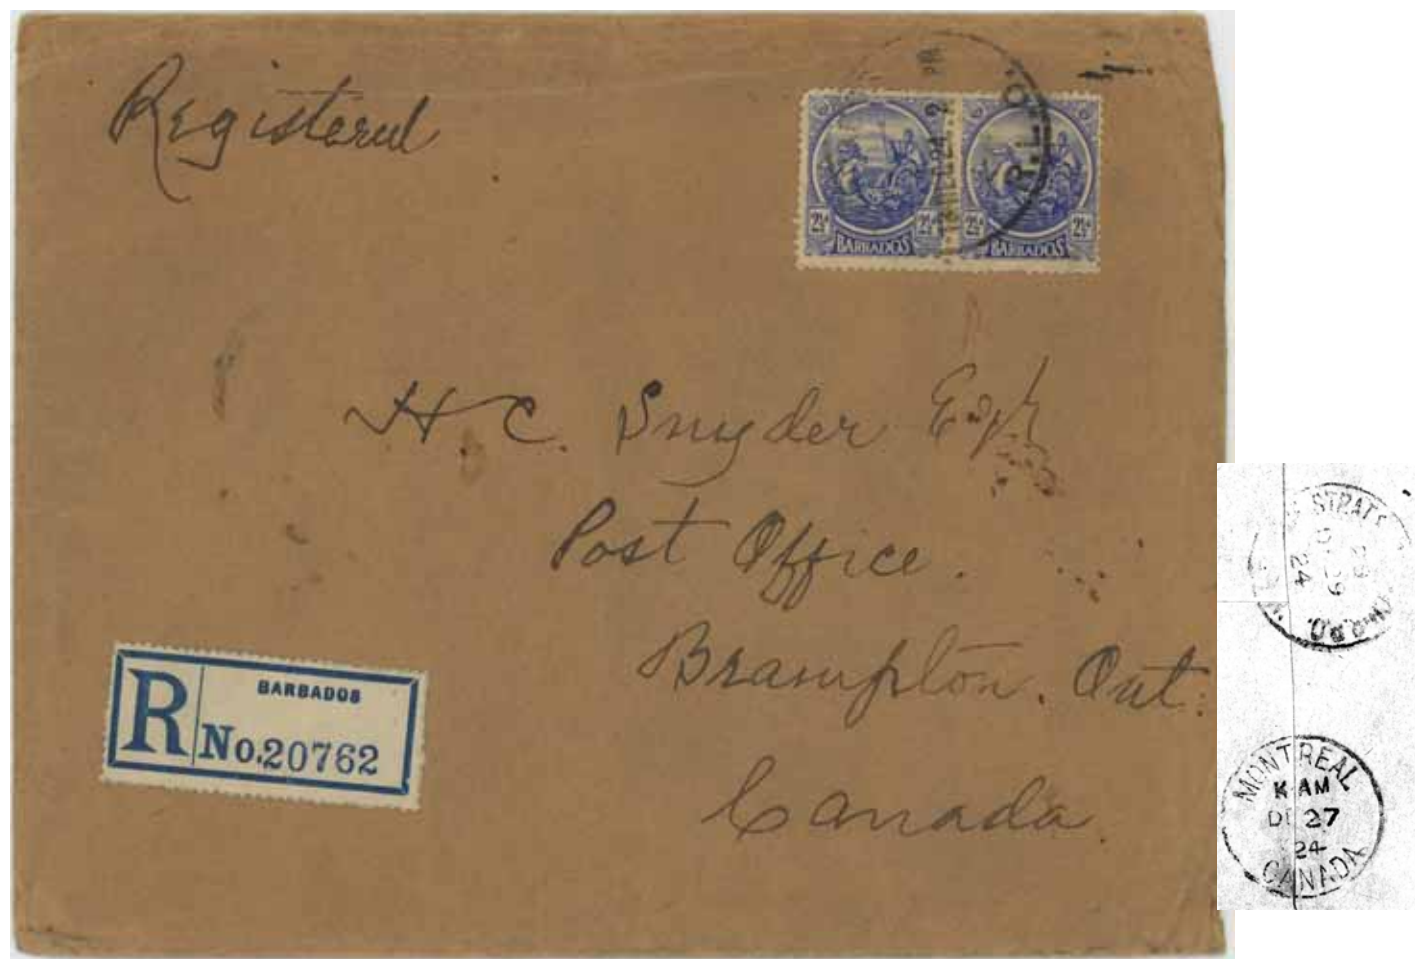 Registered
R.L.O.
PM
2½d 2½d
BARBADOS
2½d 2½d
BARBADOS
H. C. Snyder Esqr
Post Office.
Brampton. Ont.
Canada.
R
BARBADOS
No. 20762
STRAT
29
24
R.P.O.
MONTREAL
K AM
DE 27
24
CANADA